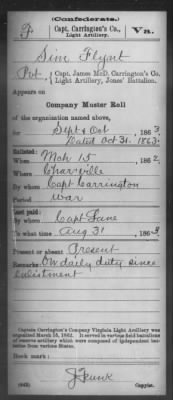 (Confederate.)
F Capt. Carrington's Co., Va.
Light Artillery.
Sim Flynt
Pvt, Capt. James McD. Carrington's Co.,
Light Artillery, Jones' Battalion.
Appears on
Company Muster Roll
of the organization named above,
for Sept & Oct, 1863
Dated Oct 31. 1863.
Enlisted:
When Mch 15, 1862.
Where Charville
By whom Capt Carrington
Period war
Last paid:
By whom Capt Lane
To what time Aug 31, 1863.
Present or absent Present
Remarks: On daily duty since
enlistment
Captain Carrington's Company Virginia Light Artillery was
organized March 15, 1862. It served in various field battalions
of reserve artillery which were composed of independent batteries
from various States.
Book mark:
(642) J Funk
Copyist.